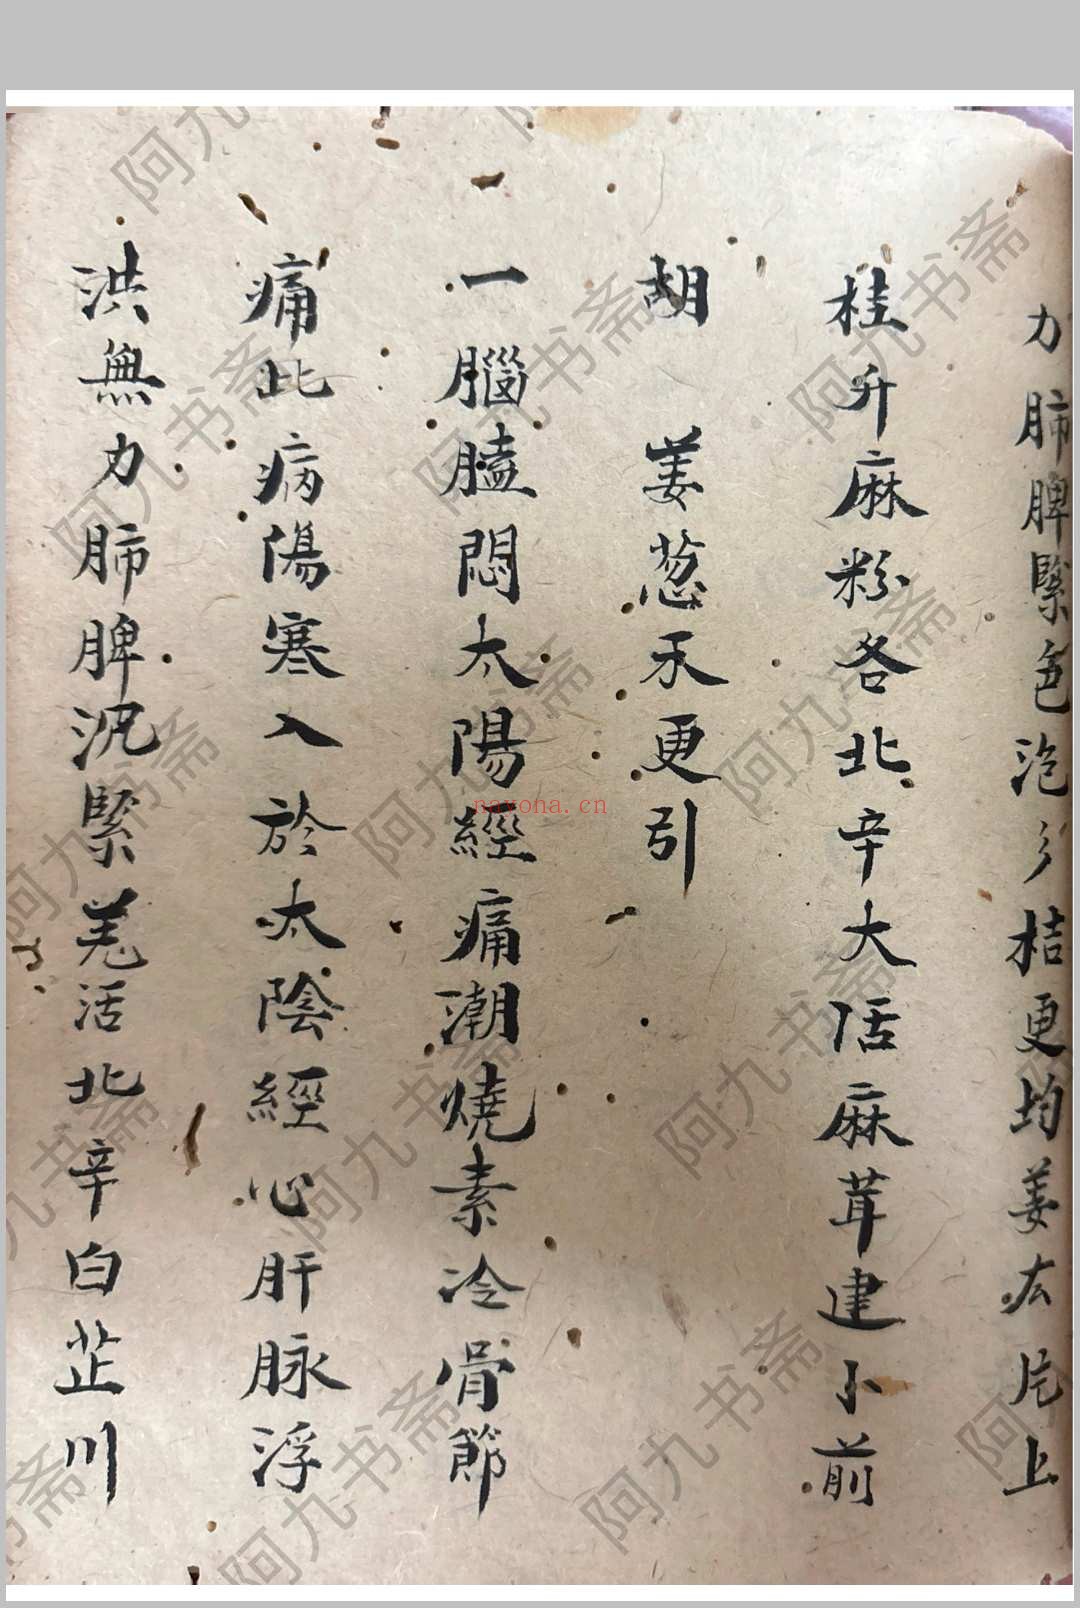 力肺脾緊色泡彡桔更均姜厷片上
桂升麻粉各北辛大活麻茸建卜前
胡　姜葱禾更引
一腦膉悶太陽經痛潮燒素冷骨節
痛此病傷寒入於太陰經心肝脉浮
洪無力肺脾沉緊羌活北辛白芷川
阿九书斋
nayona.cn